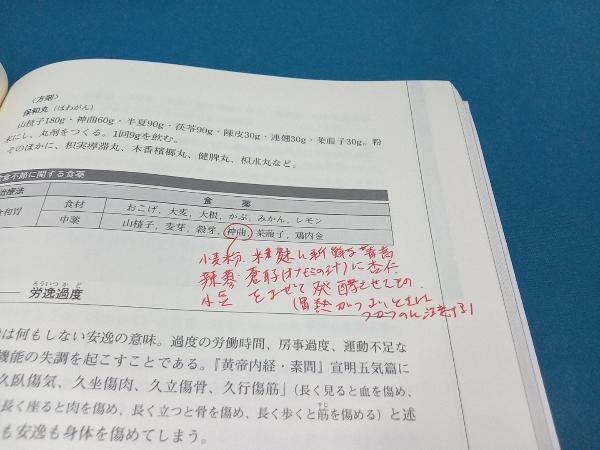 〈方剤〉
保和丸(ほわがん)
山楂子180g・神曲60g・半夏90g・茯苓90g・陳皮30g・連翹30g・萊菔子30g。粉
末にし、丸剤をつくる。1回9gを飲む。
そのほかに、枳実導滞丸、木香檳榔丸、健脾丸、枳朮丸など。
食不節に関する食薬
治療法 食薬
食和胃 食材 おこげ、大麦、大根、かぶ、みかん、レモン
中薬 山楂子、麦芽、穀芽、神曲、萊菔子、鶏内金
小麦粉、米麹に新鮮な青蒿
辣蓼・蒼耳(オナモミの汁)に杏仁
小豆をまぜて発酵させたもの。
(胃熱がつよいときは
つかうのに注意する)
労逸過度
ろういつかど
は何もしない安逸の意味。過度の労働時間、房事過度、運動不足な
機能の失調を起こすことである。『黄帝内経・素問』宣明五気篇に
久臥傷気、久坐傷肉、久立傷骨、久行傷筋」(長く見ると血を傷め、
長く座ると肉を傷め、長く立つと骨を傷め、長く歩くと筋を傷める)と述
も安逸も身体を傷めてしまう。